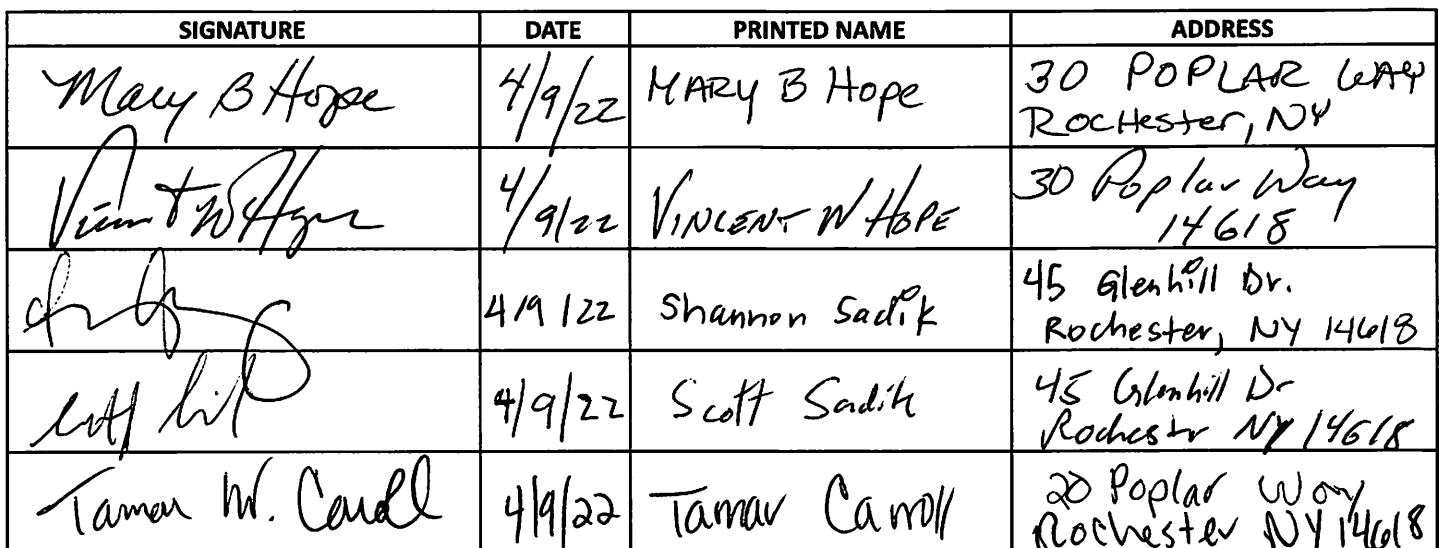 SIGNATURE DATE PRINTED NAME ADDRESS
Mary B Hope 4/9/22 MARY B Hope 30 POPLAR WAY
Rochester, NY
Vincent W Hope 4/9/22 VINCENT W HOPE 30 Poplar Way
14618
4/9/22 Shannon Sadik 45 Glenhill Dr.
Rochester, NY 14618
4/9/22 Scott Sadik 45 Glenhill Dr
Rochester NY 14618
Tamar W. Carroll 4/9/22 Tamar Carroll 20 Poplar Way
Rochester NY 14618